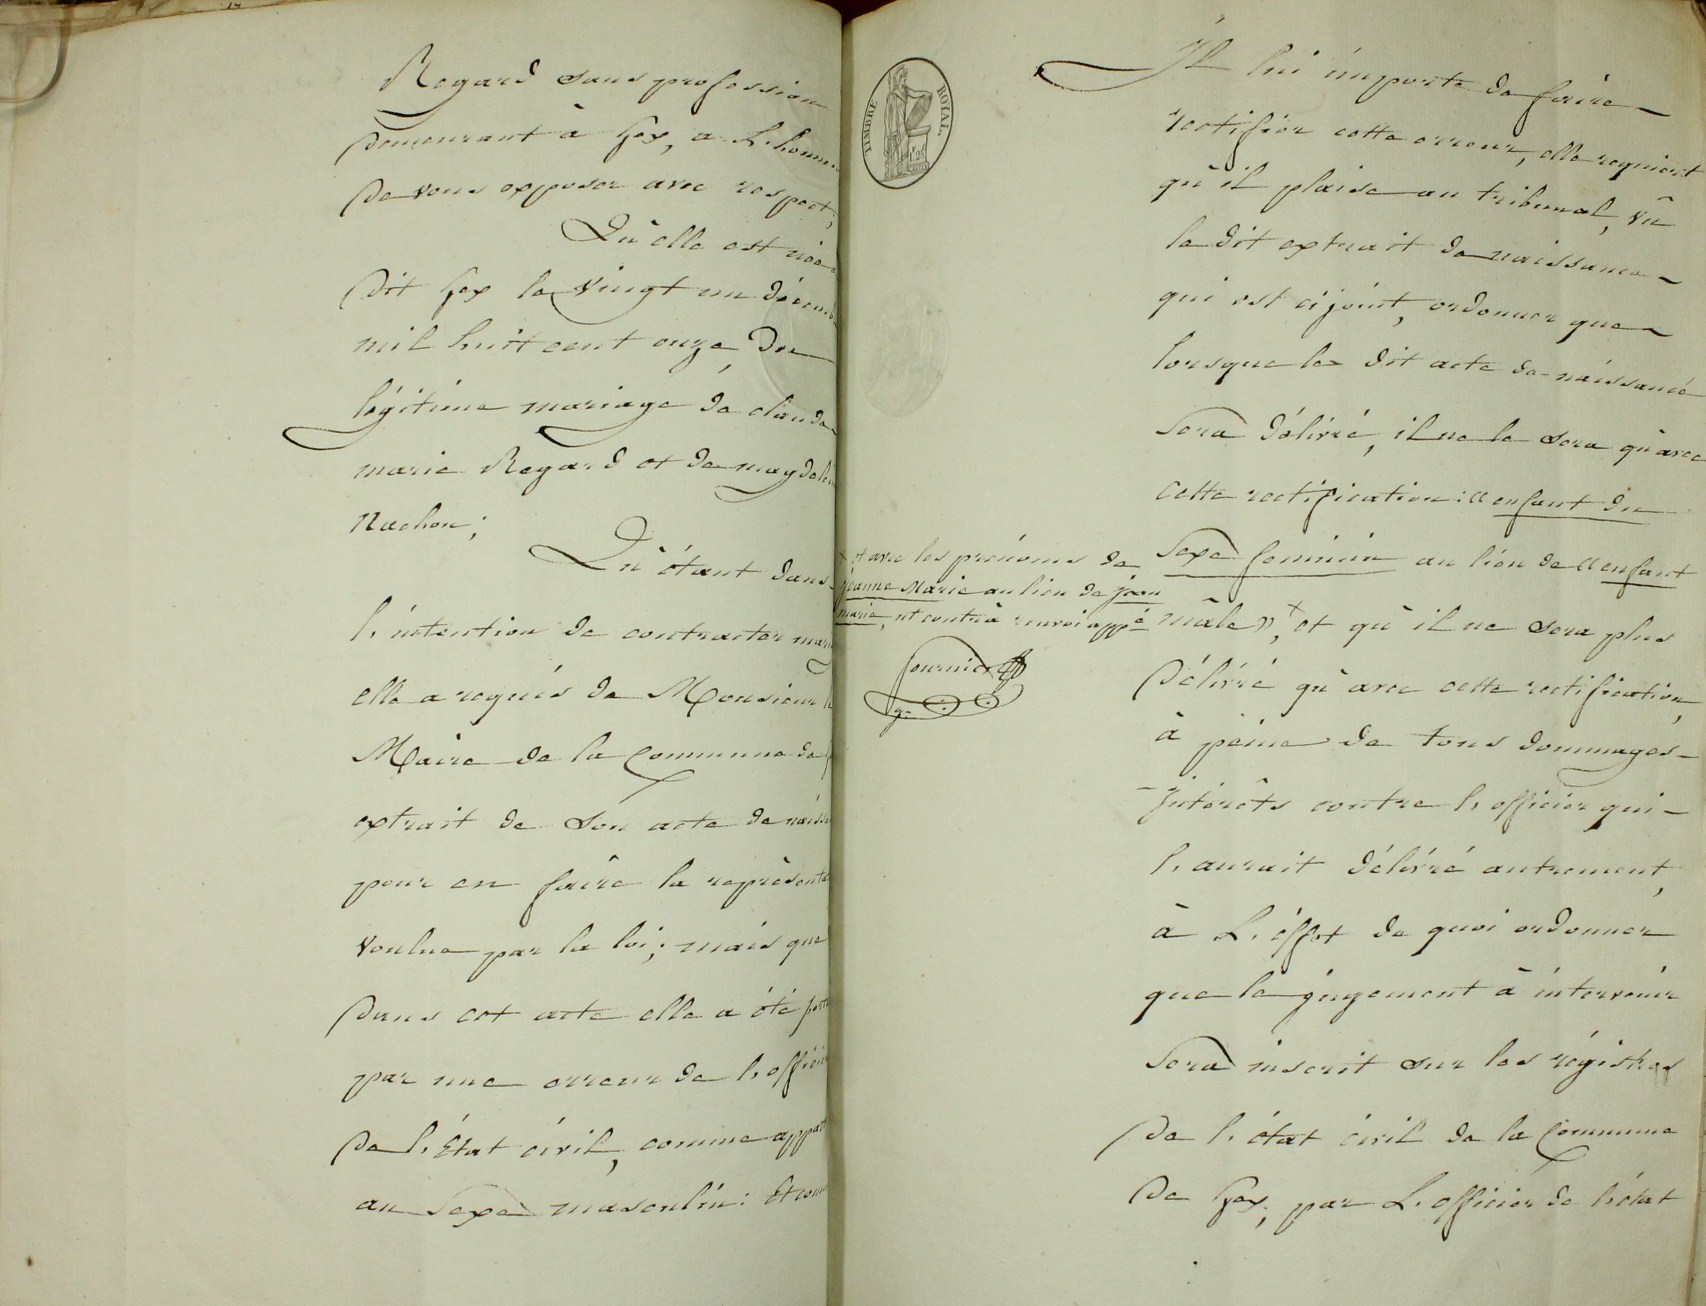 Regard sans profession
Demeurant à Gex, a L'honn
De vous exposer avec respect,
Qu'elle est née
Dit Gex le vingt un décem
mil huit cent onze, Du
légitime mariage de claude
marie Regard et de magdele
Nachon;
Qu'étant dans
l'intention de contracter mar
elle a requis de Monsieur l
Maire de la Commune de
extrait de son acte de naiss
pour en faire la représenta
voulue par la loi; mais que
Dans cet acte elle a été port
par une erreur de l'officie
De l'état civil, comme appar
au Sexe masculin: Et com
TIMBRE ROYAL.
Il lui importe de faire
rectifier cette erreur, elle requiert
qu'il plaise au tribunal, vû
le dit extrait de naissance
qui est ci joint, ordonner que
lorsque le dit acte de naissance
Sera délivré, il ne le sera qu'avec
cette rectification: « enfant du
Sexe feminin au lieu de « enfant
mâle », + et qu'il ne sera plus
Délivré qu'avec cette rectification,
à peine de tous dommages-
-Intérêts contre l'officier qui
l'aurait délivré autrement,
à L'effet de quoi ordonner
que le jugement à intervenir
Sera inscrit sur les régistres
De l'état civil de la Commune
De Gex, par L'officier de l'état
+ et avec les prénoms de
jeanne Marie au lieu de jean
marie,
fournier